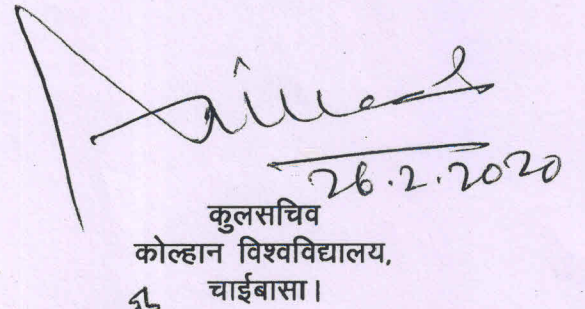 26.2.2020
कुलसचिव
कोल्हान विश्वविद्यालय,
चाईबासा।